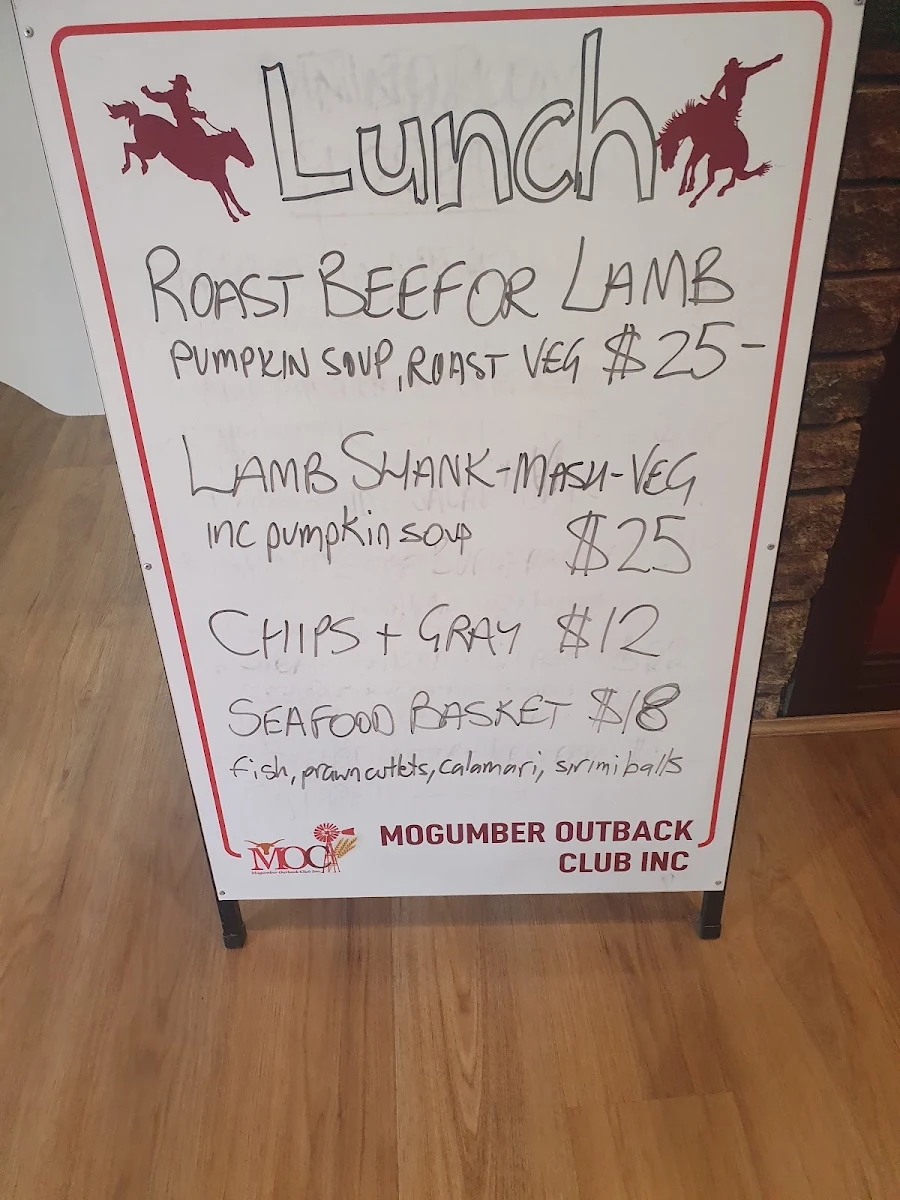 Lunch
ROAST BEEF OR LAMB
PUMPKIN SOUP, ROAST VEG $25-
LAMB SHANK-MASH-VEG
inc pumpkin soup $25
CHIPS + GRAVY $12
SEAFOOD BASKET $18
fish, prawn cutlets, calamari, sirimi balls
MOC
Mogumber Outback Club Inc.
MOGUMBER OUTBACK
CLUB INC